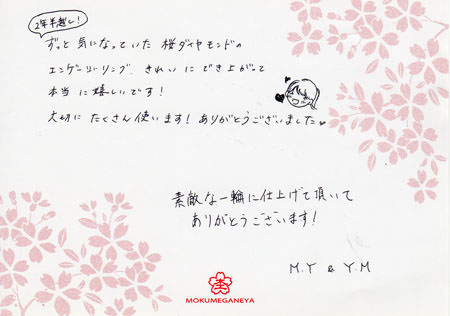 2年半越し!
ずっと気になっていた桜ダイヤモンドの
エンゲージリング、きれいにでき上がって
本当に嬉しいです!
大切にたくさん使います!ありがとうございました♥
素敵な一輪に仕上げて頂いて
ありがとうございます!
M.Y & Y.M
MOKUMEGANEYA